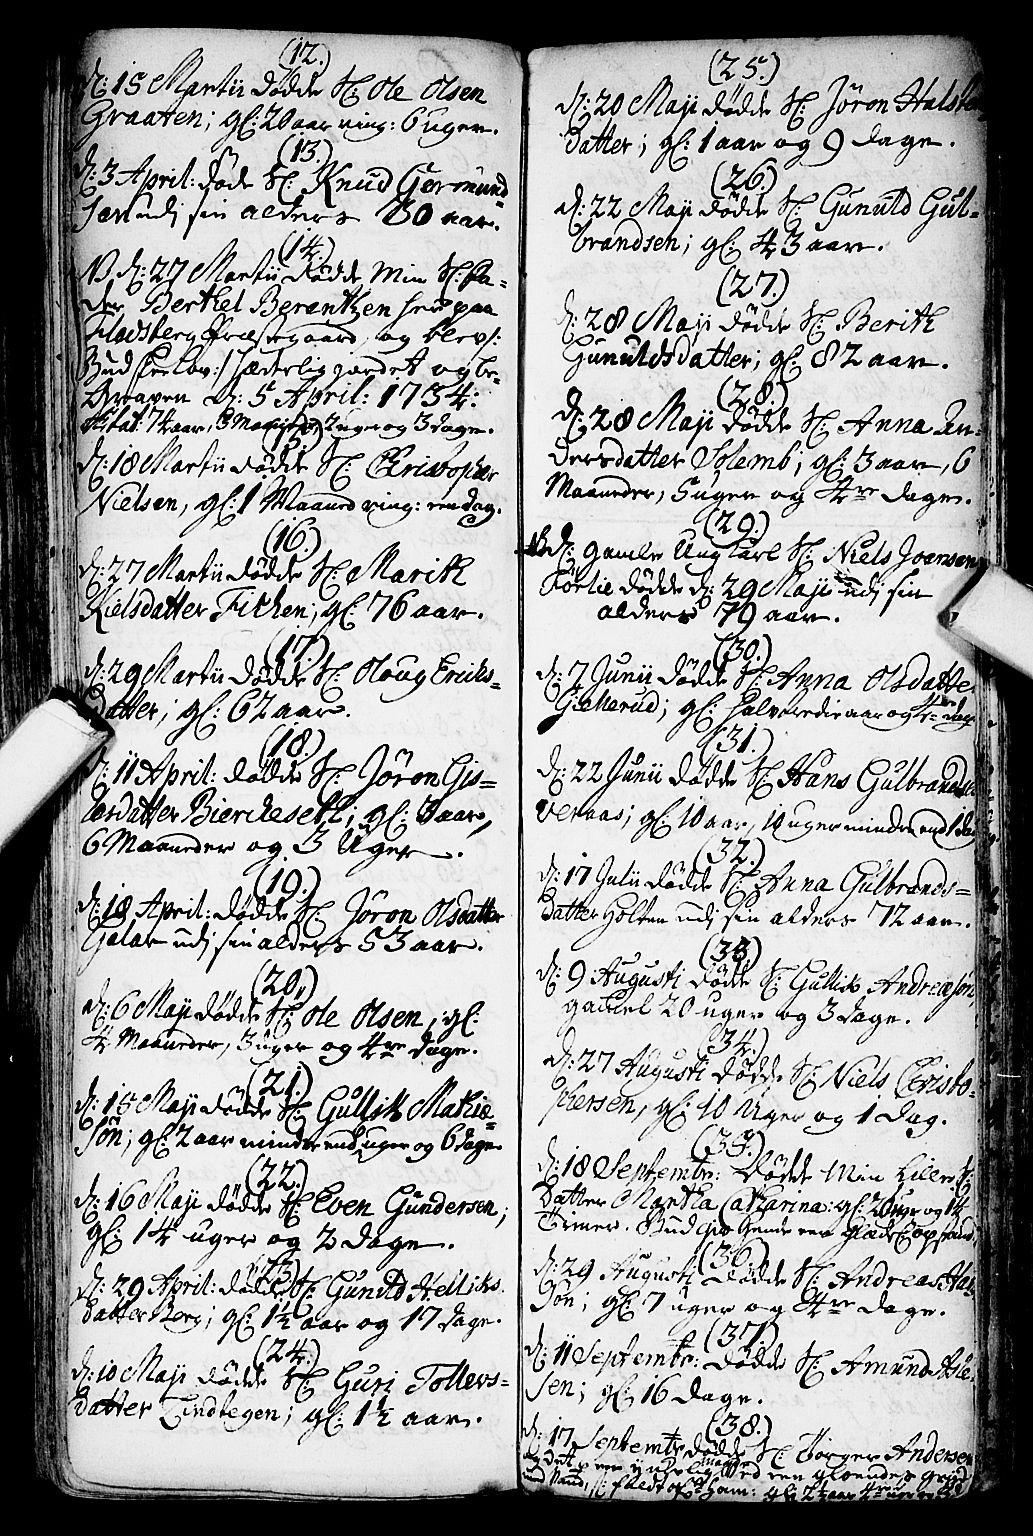 (12.)
d: 15 Martii dødde S: Ole Olsen
Graaten; gl: 20 aar ring: 6 uger.
(13.)
d: 3 April: døde S: Knud Germund-
sen udj sin alders 80 aar.
(14.)
d: 27 Martii dødde Min S: Fa-
der Berthel Berentzen her paa
Fladsberg Præstegaard, og blev /:
Gud skee Lov :/ hæderlig jordet og be-
graven d: 5 April: 1734:
Ætat: 74 aar, 8 Maan: 2 uger og 3 dage.
(15.)
d: 18 Martii dødde S: Christopher
Nielsen, gl: 1 Maaned ring: een dag.
(16.)
d: 27 Martii dødde S: Marith
Nielsdatter Fithen; gl: 76 aar.
(17.)
d: 29 Martii dødde S: Aaoug Eriks-
datter; gl: 62 aar.
(18.)
d: 11 April: dødde S: Jøron Gis-
lersdatter Bierkeseth; gl: 3 aar,
6 Maaneder og 3 Uger.
(19.)
d: 18 April: dødde S: Jøron Olsdatter
udj sin alders 53 aar.
(20.)
d: 6 Maji dødde S: Ole Olsen, gl:
4 Maaneder, 3 uger og 4re dage.
(21.)
d: 15 Maji dødde S: Gullik Mathiæ-
søn; gl: 2 aar mindre end uger og 6 dage.
(22.)
d: 16 Maji dødde S: Even Gundersen;
gl: 14 uger og 2 dage.
(23)
d: 29 April: dødde S: Gunild Helliks-
datter Berg; gl: 1½ aar og 17 dage.
(24.)
d: 10 Maji dødde S: Guri Tollevs-
datter Lindtegen; gl: 1½ aar.
(25.)
d: 20 Maji dødde S: Jøron Halsten
datter; gl: 1 aar og 9 dage.
(26.)
d: 22 Maji dødde S: Gunuld Gul-
brandsen; gl: 43 aar.
(27.)
d: 28 Maji dødde S: Berith
Gunuldsdatter; gl: 82 aar.
(28.)
d: 28 Maji dødde S: Anna An-
dersdatter Solemb; gl: 3 aar, 6
Maaneder, 5 uger og 4re dage.
(29.)
NB d: gamle Ung Karl S: Niels Joensen
Førlie dødde d: 29 Maji udj sin
alders 79 aar.
(30.)
d: 7 Junii dødde S: Anna Olsdatter
Giellerud; gl: halvtredie aar og 4re dage
(31.)
d: 22 Junii dødde S: Hans Gulbrandsen
Veraas; gl: 10 aar, 10 uger mindre end 1 dag
(32.)
d: 17 Julii dødde S: Anna Gulbrands-
datter Holten udj sin alders 72 aar.
(33.)
d: 9 Augusti dødde S: Gullik Andreæsøn
gammel 20 uger og 3 dage.
(34.)
d: 27 Augusti dødde S: Niels Christo-
phersen, gl: 10 Uger og 1 Dag.
(35.)
d: 18 Septembr: Dødde Min Lille S:
Datter Martha Catharina: gl: 20 uger og 14
Timer. Gud give hende een glædelig opstand.
(36.)
d: 29 Augusti dødde S: Andreas
søn; gl: 7 uger og 4re dage.
(37.)
d: 11 Septembr: dødde S: Amund Asle-
sen; gl: 16 dage.
(38.)
d: 17 Septembr dødde S: Børger Andersen
gl: 2½ aar 4re uger og